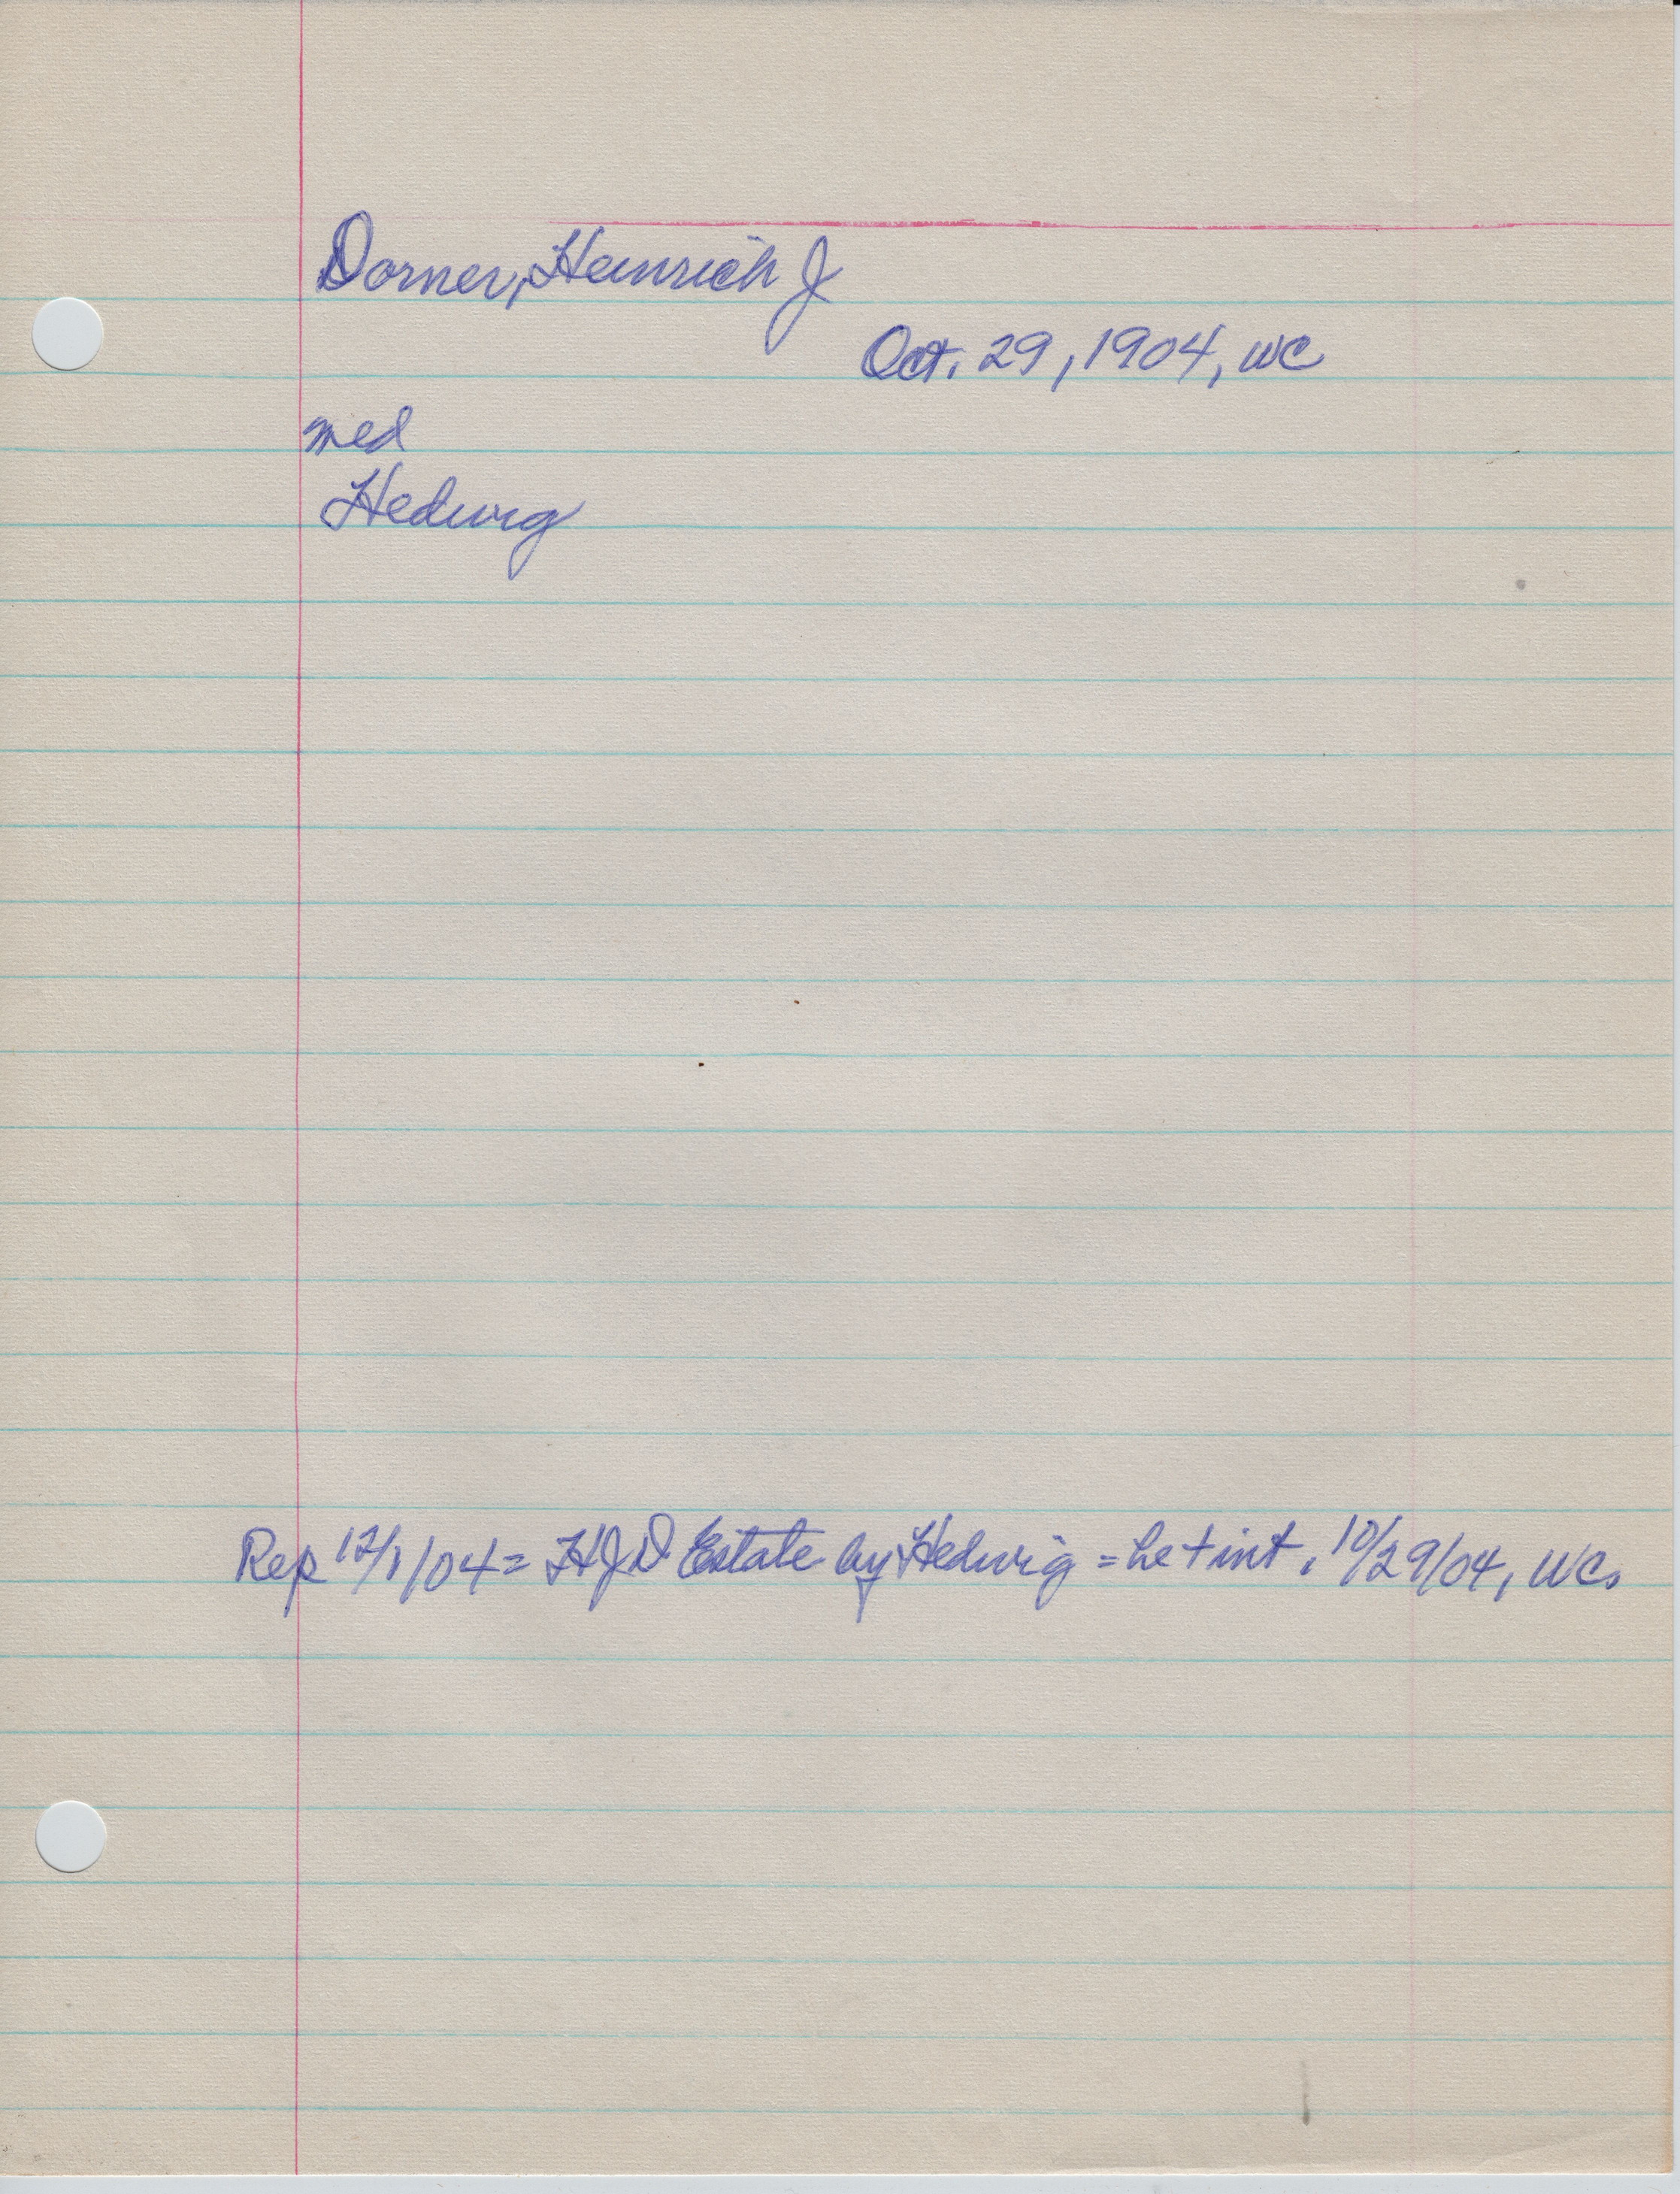 Dorner, Heinrich J
Oct. 29, 1904, WC
med
Hedwig
Rep 12/1/04 = HJD Estate by Hedwig = he + int. 10/29/04, WC.